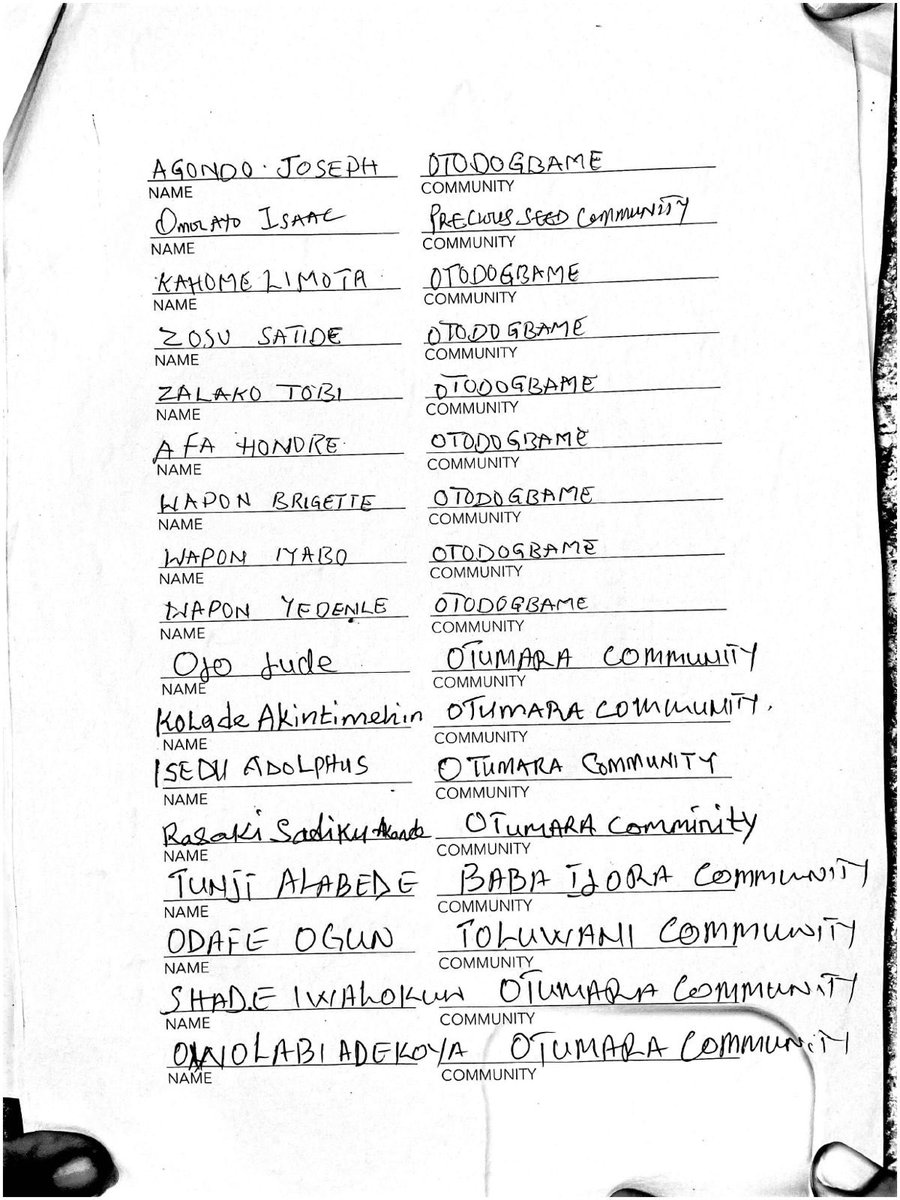 AGONDO. JOSEPH OTODOGBAME
NAME COMMUNITY
OMOLAYO ISAAC PRECIOUS SEED COMMUNITY
NAME COMMUNITY
KAHOME LIMOTA OTODOGBAME
NAME COMMUNITY
ZOSU SATIDE OTODOGBAME
NAME COMMUNITY
ZALAKO TOBI OTODOGBAME
NAME COMMUNITY
AFA HONDRE OTODOGBAME
NAME COMMUNITY
WAPON BRIGETTE OTODOGBAME
NAME COMMUNITY
WAPON IYABO OTODOGBAME
NAME COMMUNITY
WAPON YEDENLE OTODOGBAME
NAME COMMUNITY
Ojo Jude OTUMARA COMMUNITY
NAME COMMUNITY
Kolade Akintimehin OTUMARA COMMUNITY.
NAME COMMUNITY
ISEDU ADOLPHUS OTUMARA COMMUNITY
NAME COMMUNITY
Rasaki Sadiku Akande OTUMARA Comminity
NAME COMMUNITY
TUNJI ALABEDE BABA IJORA COMMUNITY
NAME COMMUNITY
ODAFE OGUN TOLUWANI COMMUNITY
NAME COMMUNITY
SHADE IWALOKUN OTUMARA COMMUNITY
NAME COMMUNITY
OWOLABI ADEKOYA OTUMARA COMMUNITY
NAME COMMUNITY